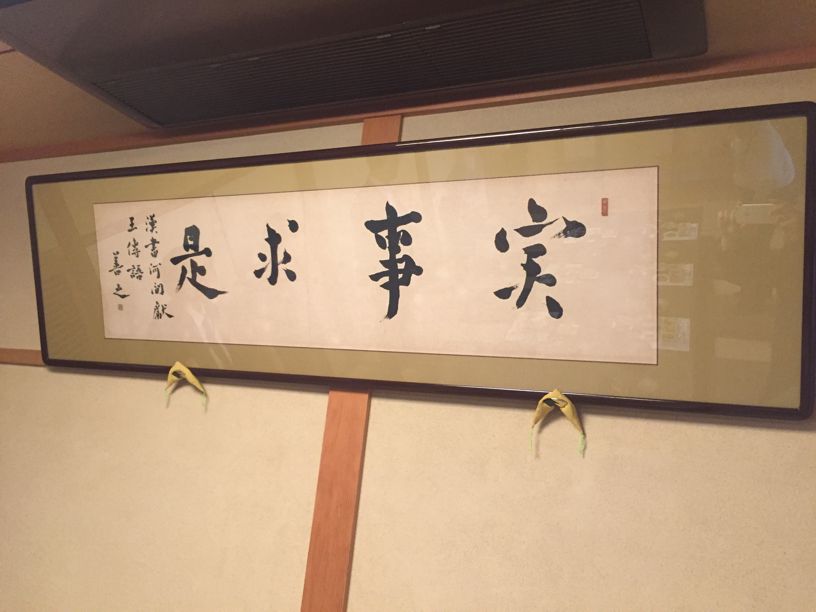 実事求是
漢書河間獻
王傳語
善之